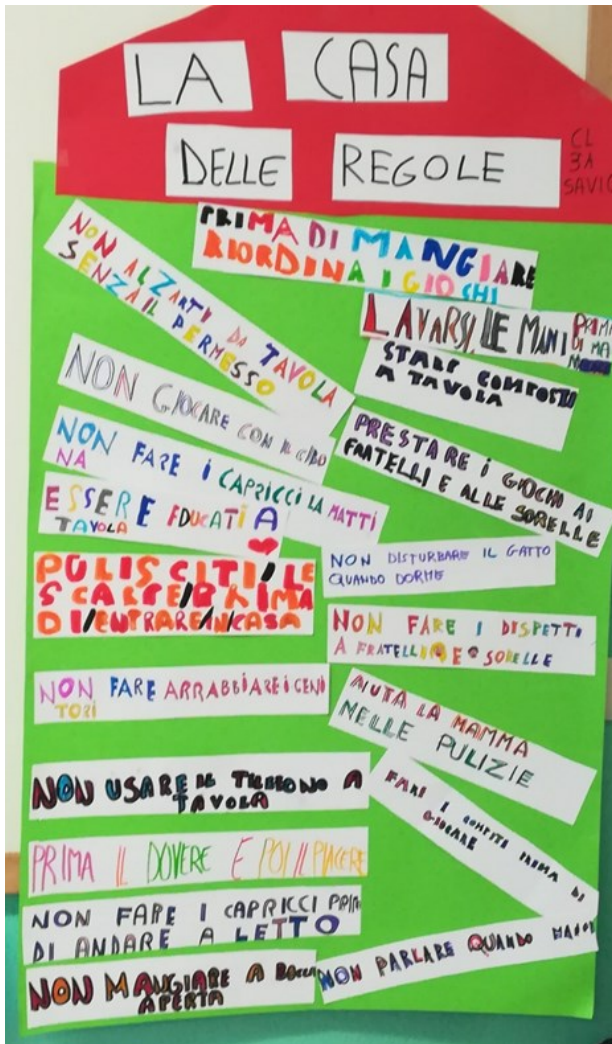 LA CASA
DELLE REGOLE
CL
3A
SAVIO
PRIMA DI MANGIARE
RIORDINA I GIOCHI
NON ALZARTI DA TAVOLA
SENZA IL PERMESSO
LAVARSI LE MANI PRIMA
DI MA
STARE COMPOSTI
A TAVOLA
NON GIOCARE CON IL CIBO
PRESTARE I GIOCHI AI
FRATELLI E ALLE SORELLE
NON FARE I CAPRICCI LA MATTI
NA
ESSERE EDUCATI A
TAVOLA
NON DISTURBARE IL GATTO
QUANDO DORME
PULISCITI/LE
SCARPE/PRIMA
DI/ENTRARE/IN/CASA
NON FARE I DISPETTI
A FRATELLI E SORELLE
NON FARE ARRABBIARE I GENI
TORI
AIUTA LA MAMMA
NELLE PULIZIE
NON USARE IL TELEFONO A
TAVOLA
FARE I COMPITI PRIMA DI
GIOCARE
PRIMA IL DOVERE E POI IL PIACERE
NON FARE I CAPRICCI PRIMA
DI ANDARE A LETTO
NON PARLARE QUANDO
NON MANGIARE A BOCCA
APERTA